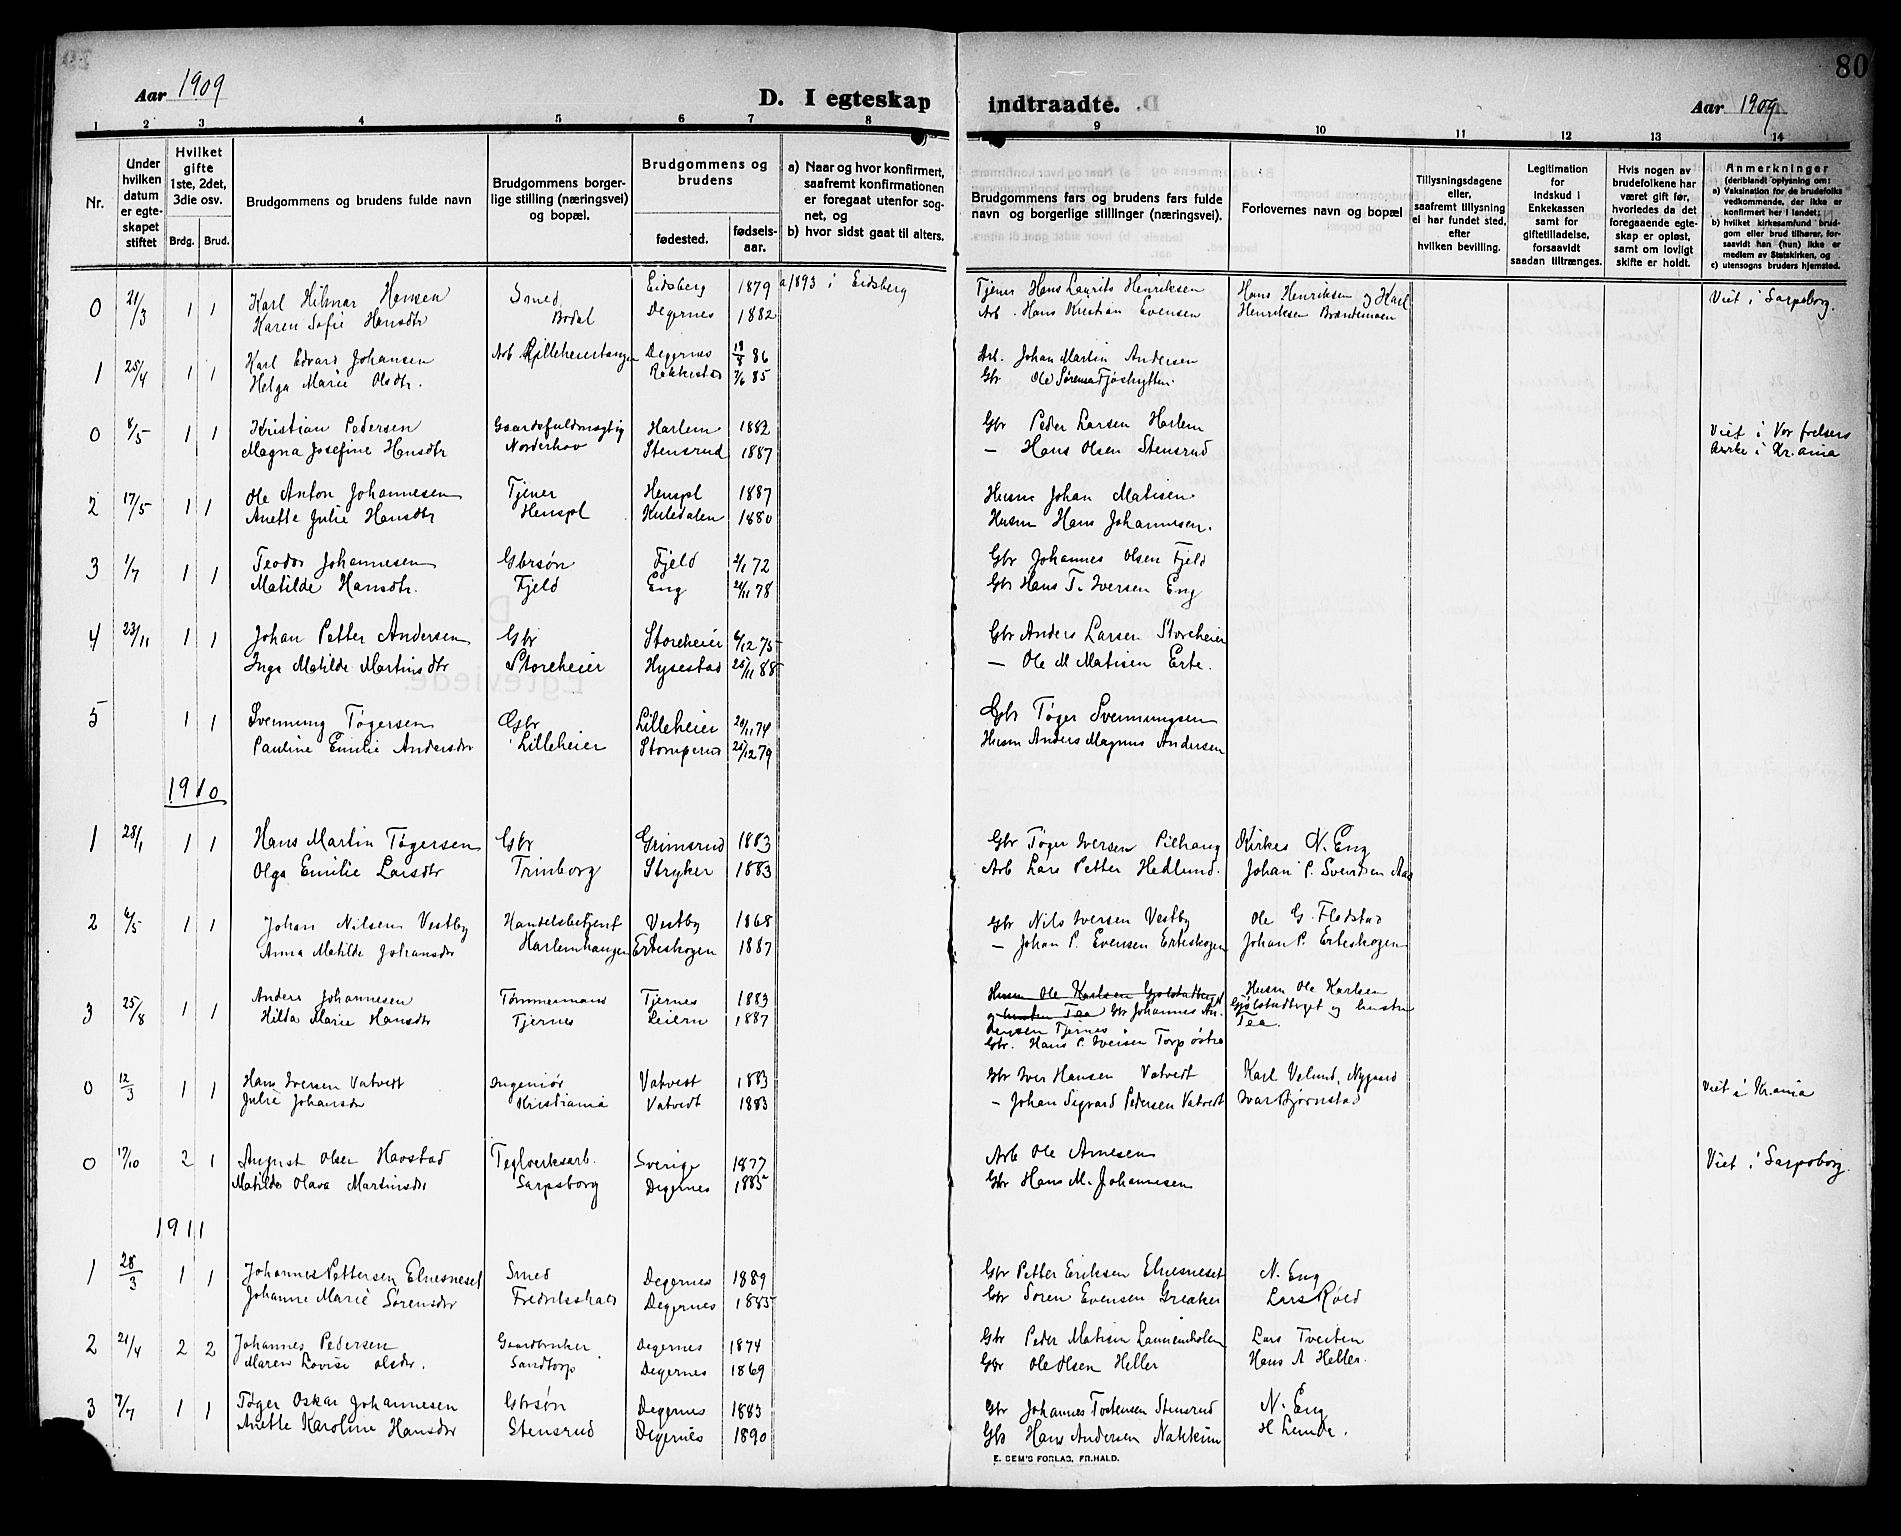 80
Aar 1909
D. I egteskap indtraadte.
Aar 1909
1 2 3 4 5 6 7 8 9 10 11 12 13 14
Nr.
Under hvilken datum er egteskapet stiftet
Hvilket gifte 1ste, 2det, 3die osv.
Brdg. Brud.
Brudgommens og brudens fulde navn
Brudgommens borgerlige stilling (næringsvei) og bopæl.
Brudgommens og brudens
fødested.
fødselsaar.
a) Naar og hvor konfirmert, saafremt konfirmationen er foregaat utenfor sognet, og
b) hvor sidst gaat til alters.
Brudgommens fars og brudens fars fulde navn og borgerlige stillinger (næringsvei).
Forlovernes navn og bopæl
Tillysningsdagene eller, saafremt tillysning ei har fundet sted, efter hvilken bevilling.
Legitimation for Indskud i Enkekassen samt for giftetilladelse, forsaavidt saadan tiltrænges.
Hvis nogen av brudefolkene har været gift før, hvorledes da det foregaaende egteskap er opløst, samt om lovligt skifte er holdt.
Anmerkninger
(deriblandt oplysning om:
a) Vaksination for de brudefolks vedkommende, der ikke er konfirmert her i landet;
b) hvilket kirkesamfund brudgom eller brud tilhører, forsaavidt han (hun) ikke er medlem av Statskirken, og
c) utensogns bruders hjemsted.
0 21/3 1 1 Karl Hilmar Hansen Smed Eidsberg 1879 a/1893 i Eidsberg Tjener Hans Laurits Henriksen Hans Henriksen og Karl Viet i Sarpsborg.
Karen Sofie Hansdtr Bodal Degernes 1882 Arb. Hans Kristian Evensen Henriksen Brændemoen
1 25/4 1 1 Karl Edvard Johansen Arb Lilleheiestangen Degernes 18/3 86 Arb. Johan Martin Andersen
Helga Marie Olsdtr. Rakkestad 7/6 85 Gbr Ole Sørensen Tjøshytten.
0 8/5 1 1 Kristian Pedersen Gaardsfuldmægtig Harlem 1882 Gbr Peder Larsen Harlem Viet i Vor frelsers
Magna Josefine Hansdtr Norderhov Stensrud 1887 — Hans Olsen Stensrud kirke i Kr.ania
2 17/5 1 1 Ole Anton Johannesen Tjener Henspl 1887 Husm Johan Matisen
Anette Julie Hansdtr Henspl Kuledalen 1880 Husm Hans Johannesen.
3 1/7 1 1 Teodor Johannesen Gbrsøn Fjeld 2/1 72 Gbr Johannes Olsen Fjeld
Matilde Hansdtr. Fjeld Eng 24/11 78 Gbr Hans T. Iversen Eng
4 23/11 1 1 Johan Petter Andersen Gbr Storeheier 6/12 75 Gbr Anders Larsen Storeheier
Inga Matilde Martinsdtr Storeheier Hysestad 25/11 88 — Ole M Matisen Erte.
5 1 1 Svennung Tøgersen Gbr Lilleheier 20/11 74 Gbr Tøger Svennungsen
Pauline Emilie Andersdtr Lilleheier Stomperud 25/12 79 Husm Anders Magnus Andersen
1910
1 28/1 1 1 Hans Martin Tøgersen Gbr Grimsrud 1883 Gbr Tøger Iversen Pilhaug Kirkes N. Eng
Olga Emilie Larsdtr Trinborg Stryker 1883 Arb Lars Petter Hedlund. Johan P. Svendsen Aas
2 6/5 1 1 Johan Nilsen Vestby Handelsbetjent Vestby 1868 Gbr Nils Iversen Vestby Ole G. Flodstad
Anna Matilde Johansdtr Harlemhaugen Erteskogen 1887 — Johan P. Evensen Erteskogen Johan P. Erteskogen
3 25/8 1 1 Anders Johannesen Tømmermand Tjernes 1883 Husm Ole Karlsen Gjølstadberget Husm Ole Karlsen
Hilda Marie Hansdtr Tjernes Leiern 1887 og hustru Tea Gbr Johannes An- Gjølstadberget og hustru
dersen Tjernes Tea.
Gbr. Hans P. Iversen Torp østre
0 12/3 1 1 Hans Iversen Vatvedt Ingeniør Vatvedt 1883 Gbr Iver Hansen Vatvedt Karl Velund, Nygaard Viet i Kr.ania
Julie Johansdr Kristiania Vatvedt 1883 — Johan Sigvard Pedersen Vatvedt Ivar Bjørnstad
0 17/10 2 1 August Olsen Havstad Teglverksarb. Sverige 1877 Arb Ole Arnesen Viet i Sarpsborg.
Matilde Olava Martinsdtr Sarpsborg Degernes 1885 Gbr Hans M. Johannesen
1911
1 28/3 1 1 Johannes Pettersen Elnesneset Smed Degernes 1889 Gbr Petter Eriksen Elnesneset N. Eng
Johanne Marie Sørensdtr Fredrikshald Degernes 1885 Gbr Søren Evensen Greaker Lars Røed
2 21/4 2 2 Johannes Pedersen Gaardbruker Degernes 1874 Gbr Peder Matisen Lannemholen Lars Tveiten
Maren Lovise Olsdtr. Sandtorp Degernes 1869 Gbr Ole Olsen Heller Hans A Heller.
3 7/7 1 1 Tøger Oskar Johannesen Gbrsøn Degernes 1883 Gbr Johannes Tostensen Stensrud N. Eng
Anette Karoline Hansdtr Stensrud Degernes 1890 Gbr Hans Andersen Nakkim H Lunde.
E. SEM'S FORLAG, FR.HALD.